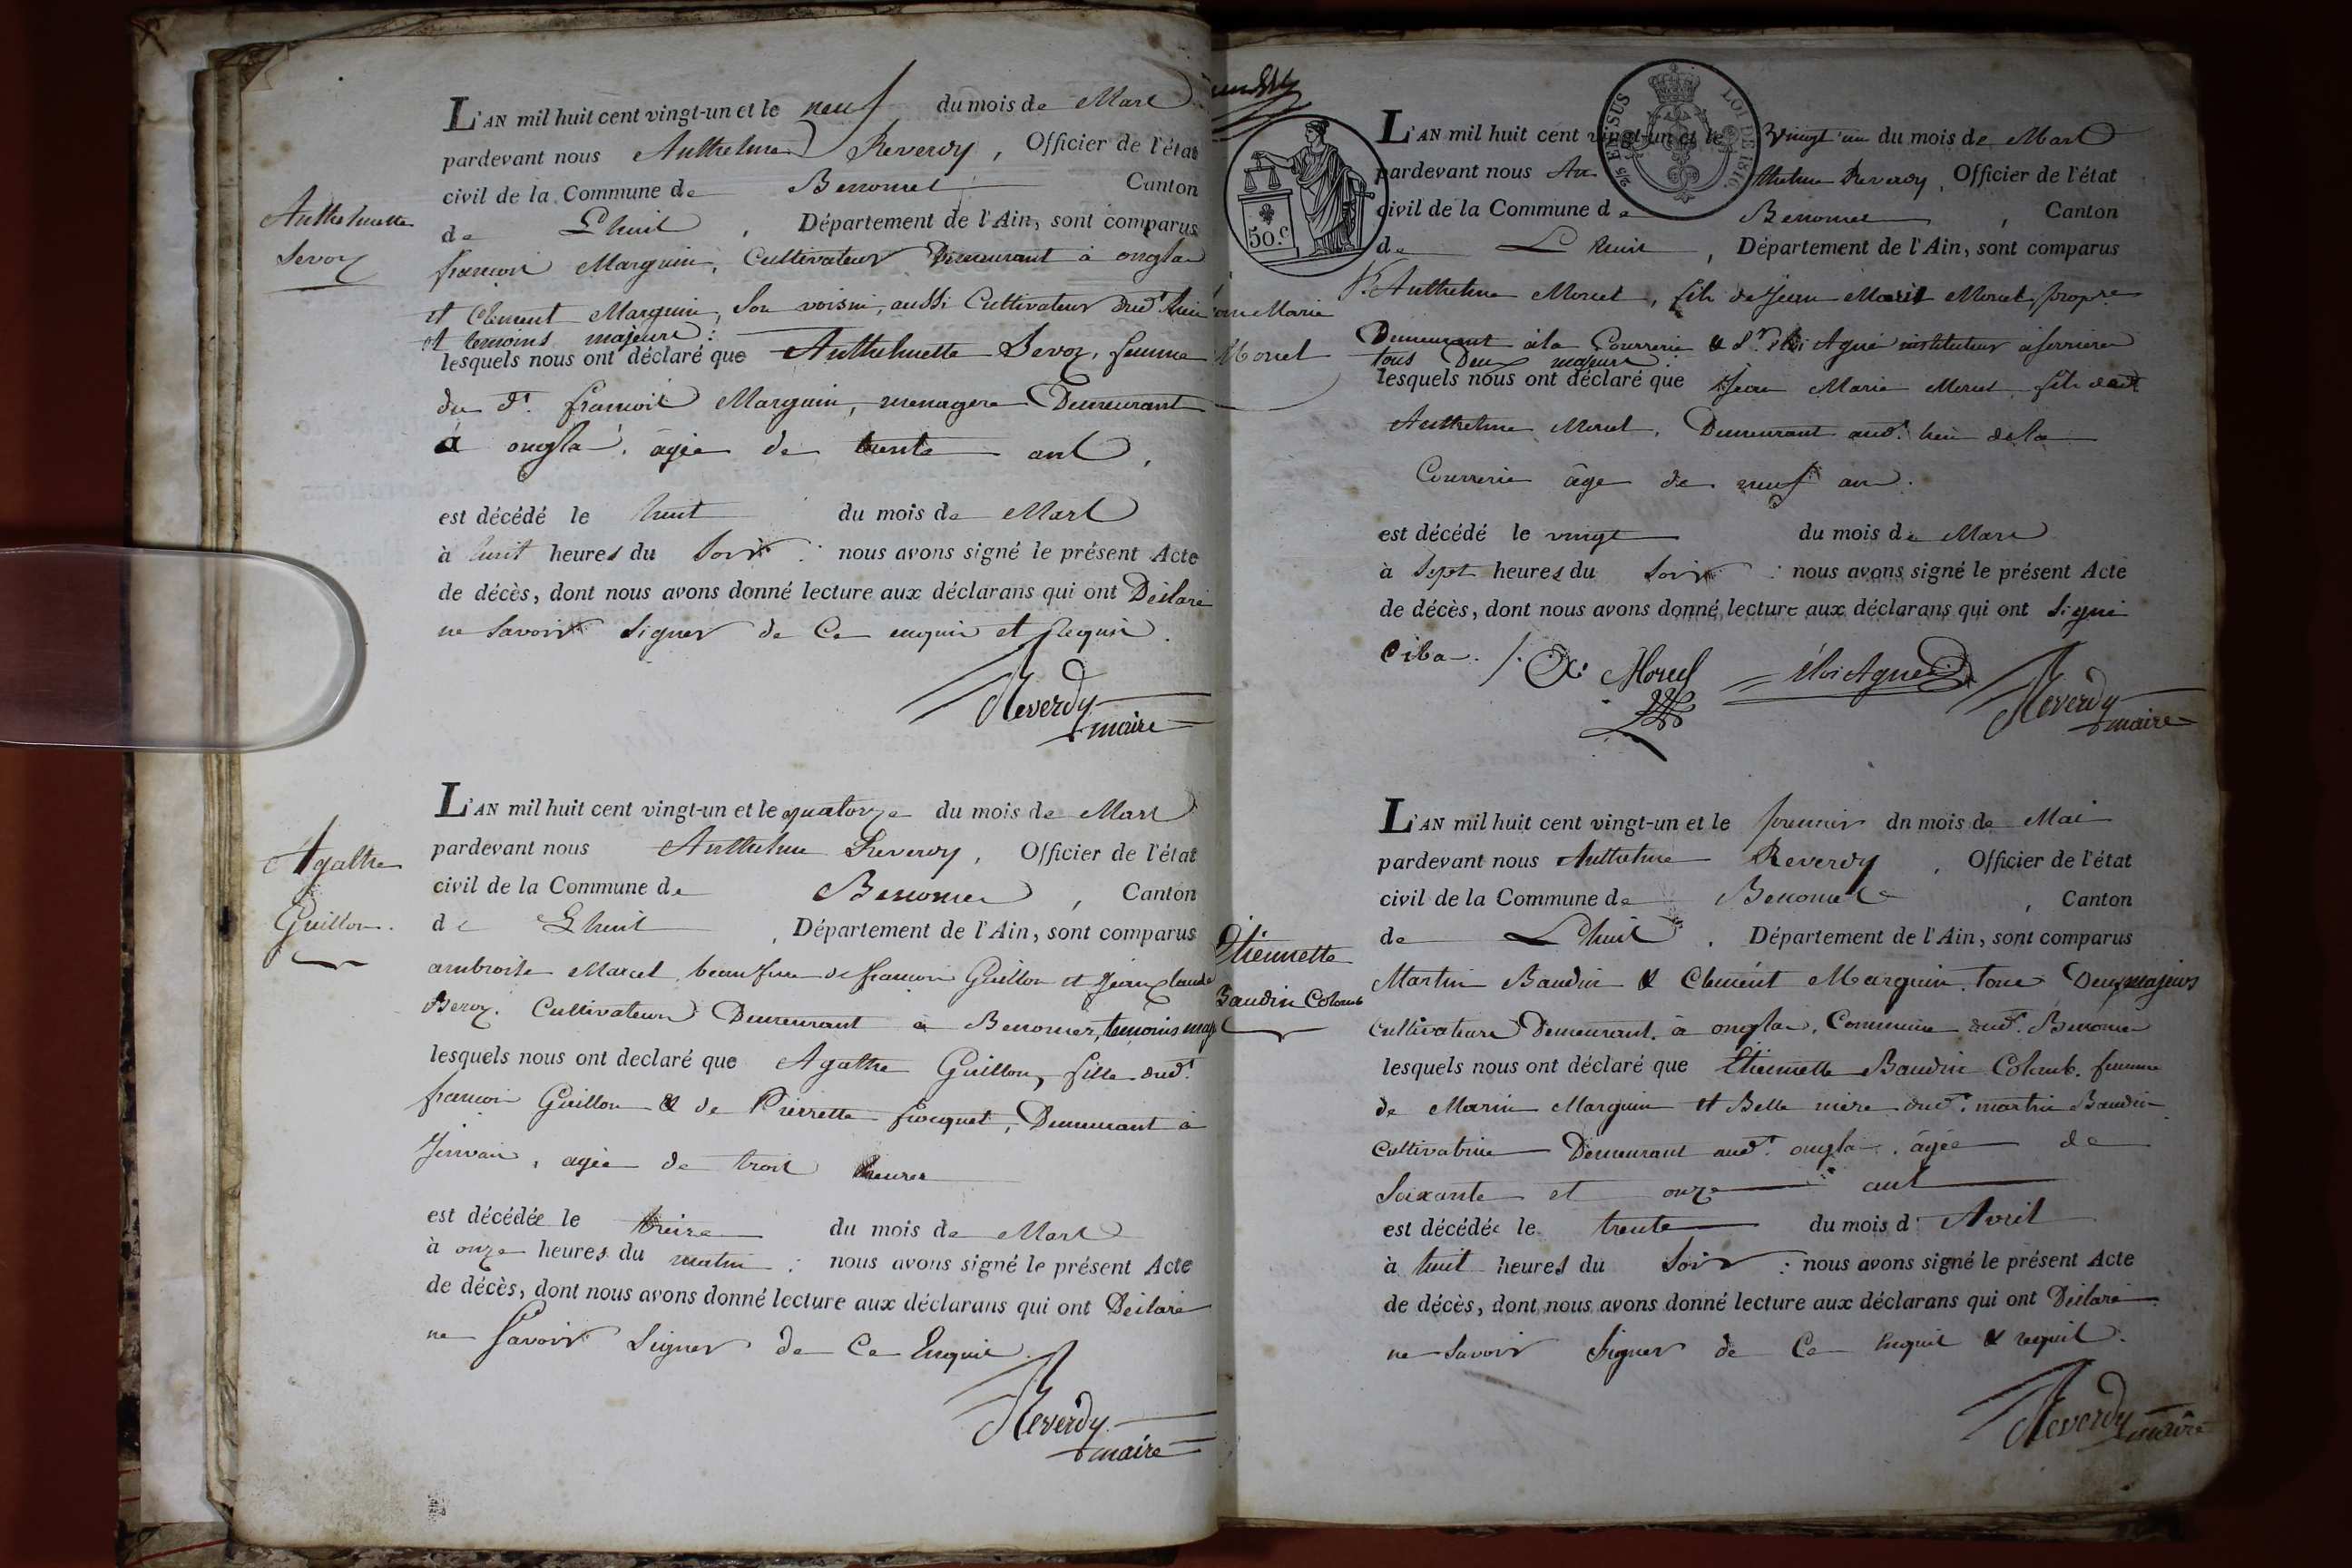 L'AN mil huit cent vingt-un et le neuf du mois de Mars
pardevant nous Anthelme Reverdy, Officier de l'état
civil de la Commune de Benonces Canton
de Lhuis, Département de l'Ain, sont comparus
françois Marguin, Cultivateur Demeurant à onglas
et Clement Marguin, Son voisin, aussi Cultivateur dud.t lieu
et temoins majeurs :
lesquels nous ont déclaré que Anthelmette Devoz, femme
du d.t françois Marguin, menagere Demeurant
à onglas, agée de trente ans,
est décédé le huit du mois de Mars
à huit heures du Soir : nous avons signé le présent Acte
de décès, dont nous avons donné lecture aux déclarans qui ont Déclaré
ne Savoir Signer de Ce enquis et Requis.
Reverdy
maire
Anthelmette
Devoz
L'AN mil huit cent vingt-un et le quatorze du mois de Mars
pardevant nous Anthelme Reverdy, Officier de l'état
civil de la Commune de Benonces, Canton
de Lhuis, Département de l'Ain, sont comparus
ambroise Marcel beau frere de françois Guillon et Jean Claude
Devoz, Cultivateurs Demeurant à Benonces, temoins maj
lesquels nous ont declaré que Agathe Guillon, fille dud.t
françois Guillon & de Pierrette focquet, Demeurant à
agée de trois heures
est décédée le treize du mois de Mars
à onze heures du matin : nous avons signé le présent Acte
de décès, dont nous avons donné lecture aux déclarans qui ont Déclaré
ne Savoir Signer de Ce Enquis
Reverdy
maire
Agathe
Guillon.
50.c
EN SUS
LOI DE 1816.
L'AN mil huit cent vingt-un et le Vingt un du mois de Mars
pardevant nous An thelme Reverdy, Officier de l'état
civil de la Commune de Benonces, Canton
de Lhuis, Département de l'Ain, sont comparus
Anthelme Morel, fils de Jean Marie Morel propre
Demeurant à la Courrerie & S.r Eloi Agnié instituteur à ferriere
tous Deux majeurs
lesquels nous ont déclaré que Jean Marie Morel fils dud.t
Anthelme Morel, Demeurant aud.t lieu de la
Courrerie âgé de neuf ans.
est décédé le vingt du mois de Mars
à Sept heures du Soir : nous avons signé le présent Acte
de décès, dont nous avons donné lecture aux déclarans qui ont Signé
Morel Eloi Agnié Reverdy
maire
Jean Marie
Morel
L'AN mil huit cent vingt-un et le premier dn mois de Mai
pardevant nous Anthelme Reverdy, Officier de l'état
civil de la Commune de Benonces, Canton
de Lhuis, Département de l'Ain, sont comparus
Martin Baudin & Clement Marguin, tous Deux majeurs
Cultivateurs Demeurant à onglas, Commune dud.t Benonces
lesquels nous ont déclaré que Etiennette Baudin Colomb, femme
de Marin Marguin et Belle mère dud.t martin Baudin
Cultivatrice Demeurant aud.t onglas, âgée de
Soixante et onze ans
est décédée le trente du mois d' Avril
à huit heures du Soir : nous avons signé le présent Acte
de décès, dont nous avons donné lecture aux déclarans qui ont Déclaré
ne Savoir Signer de Ce Enquis & requis.
Reverdy
maire
Etiennette
Baudin Colomb